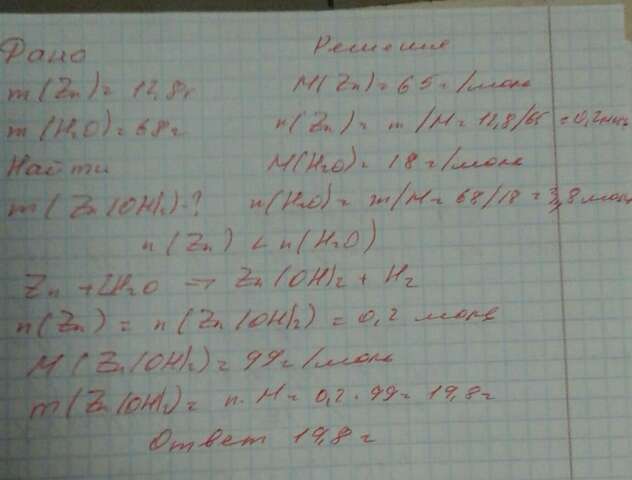 Дано Решение
m(Zn) = 12,8г M(Zn) = 65 г/моль
m(H2O) = 68г n(Zn) = m/M = 12,8/65 = 0,2моль
Найти M(H2O) = 18 г/моль
m(Zn(OH)2)-? n(H2O) = m/M = 68/18 = 3,8 моль
n(Zn) < n(H2O)
Zn + 2H2O → Zn(OH)2 + H2
n(Zn) = n(Zn(OH)2) = 0,2 моль
M(Zn(OH)2) = 99г/моль
m(Zn(OH)2) = n·M = 0,2·99 = 19,8г
Ответ 19,8г